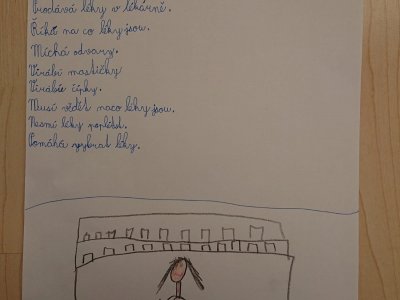 Prodává léky v lékárně.
Říká na co léky jsou.
Míchá odvary.
Virábí mastičky
Virábí čípky.
Musí vědět naco léky jsou.
Nesmí léky poplést.
Pomáhá vybrat léky.